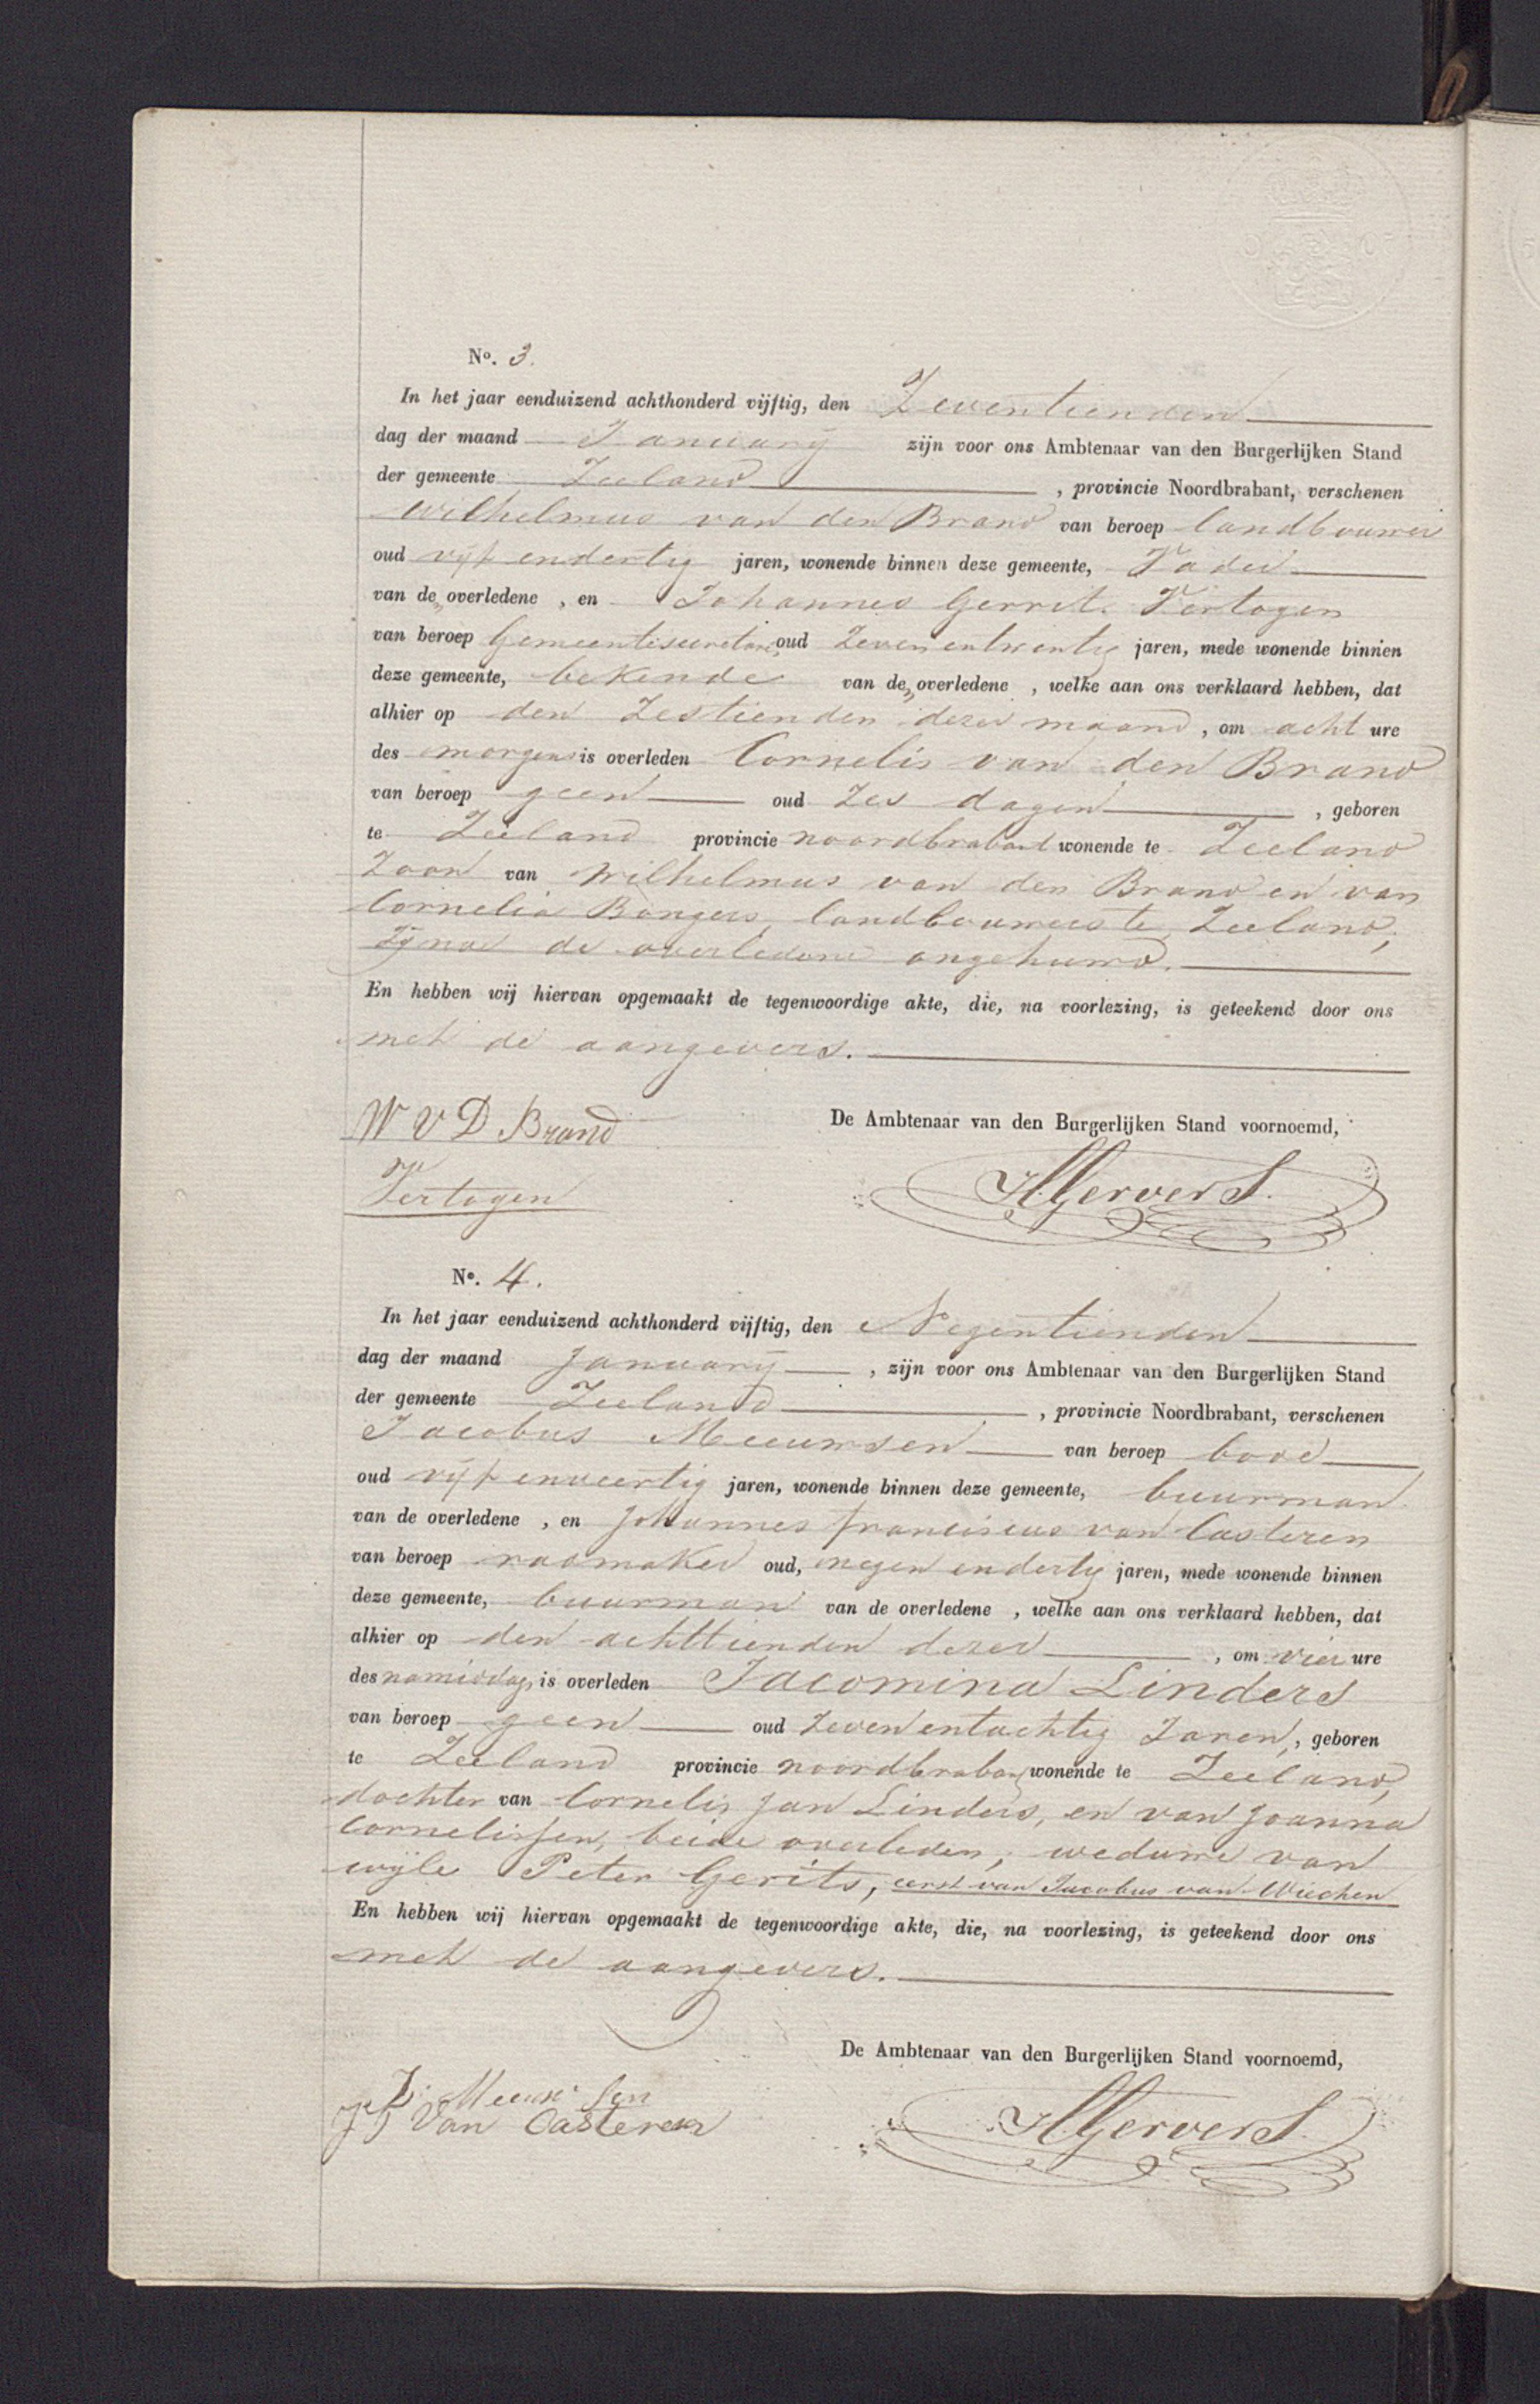 No. 3.
In het jaar eenduizend achthonderd vijftig, den Zeventienden
dag der maand Januarij zijn voor ons Ambtenaar van den Burgerlijken Stand
der gemeente Zeeland , provincie Noordbrabant, verschenen
Wilhelmus van den Brand van beroep landbouwer
oud vijf endertig jaren, wonende binnen deze gemeente, Vader
van de overledene , en Johannes Gerrit Vertogen
van beroep Gemeentesecretaris, oud Zeven entwintig jaren, mede wonende binnen
deze gemeente, bekende van de overledene , welke aan ons verklaard hebben, dat
alhier op den Zestienden dezer maand , om acht ure
des morgens is overleden Cornelis van den Brand
van beroep geen oud Zes dagen , geboren
te Zeeland provincie noordbrabant wonende te Zeeland
Zoon van Wilhelmus van den Brand en van
Cornelia Bongers, landbouwers te Zeeland,
Zijnde de overledene ongehuwd.
En hebben wij hiervan opgemaakt de tegenwoordige akte, die, na voorlezing, is geteekend door ons
met de aangevers.
W V D Brand
De Ambtenaar van den Burgerlijken Stand voornoemd,
Vertogen
No. 4.
In het jaar eenduizend achthonderd vijftig, den Negentienden
dag der maand Januarij , zijn voor ons Ambtenaar van den Burgerlijken Stand
der gemeente Zeeland , provincie Noordbrabant, verschenen
Jacobus Meeuwsen van beroep bode
oud vijf enveertig jaren, wonende binnen deze gemeente, buurman
van de overledene , en Johannes franciscus van Casteren
van beroep raamaker oud, negen endertig jaren, mede wonende binnen
deze gemeente, buurman van de overledene , welke aan ons verklaard hebben, dat
alhier op den achttienden dezer , om vier ure
des namiddags is overleden Jacomina Linders
van beroep geen oud Zeven entachtig Jaren, geboren
te Zeeland provincie noordbrabant wonende te Zeeland,
dochter van Cornelis Jan Linders, en van Joanna
Cornelissen, beide overleden, weduwe van
wijle Peter Gerits, eerst van Jacobus van Wiechen
En hebben wij hiervan opgemaakt de tegenwoordige akte, die, na voorlezing, is geteekend door ons
met de aangevers.
De Ambtenaar van den Burgerlijken Stand voornoemd,
J Meeuwsen
J F Van Casteren